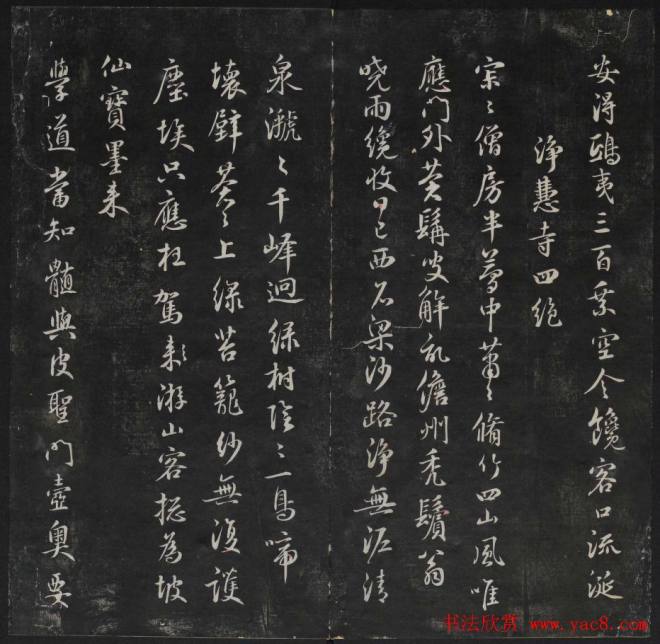 安得鴟夷三百乘空令饞客口流涎
淨慧寺四絕
宋〻僧房半夢中蕭〻脩竹四山風唯
應門外黃鬚叟解說儋州禿鬢翁
曉雨纔收日已西石梁沙路淨無泥清
泉㶁〻千峰迥綠樹陰〻一鳥啼
壞壁蒼〻上綠苔籠紗無復護
塵埃只應枉駕來游山客總為坡
仙寶墨來
學道當知髓與皮聖門壼奧要
书法欣赏 www.yac8.com